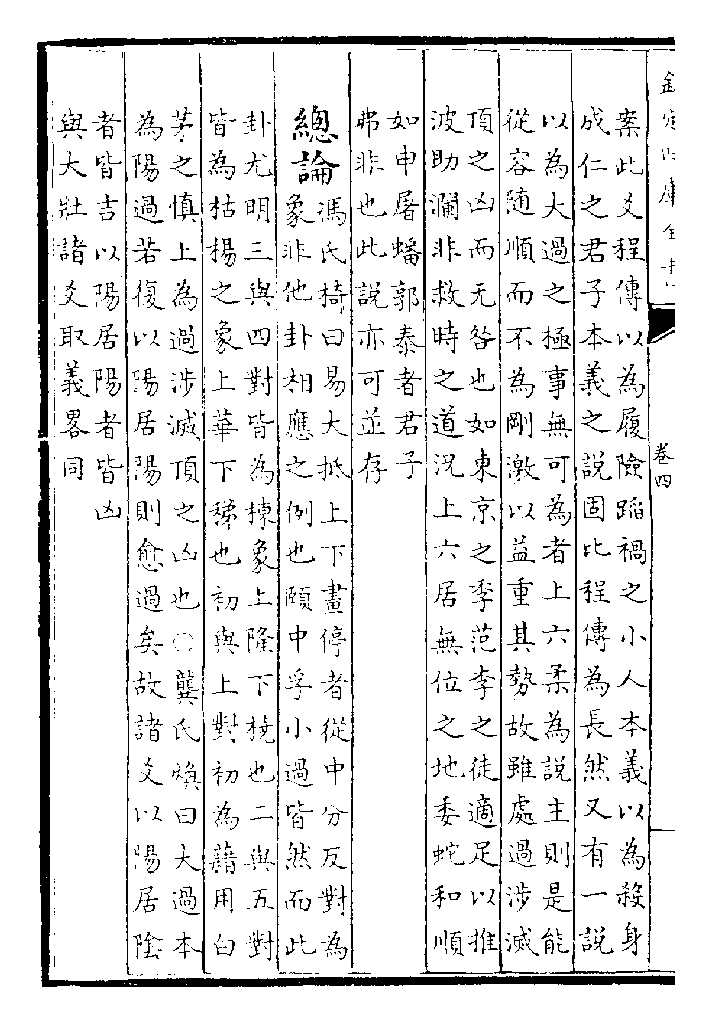 欽定四庫全書
卷四
案此爻程傳以為履險蹈禍之小人本義以為殺身
成仁之君子本義之說固比程傳為長然又有一說
以為大過之極事無可為者上六柔為說主則是能
從容隨順而不為剛激以益重其勢故雖處過涉滅
頂之凶而无咎也如東京之季范李之徒適足以推
波助瀾非救時之道況上六居無位之地委蛇和順
如申屠蟠郭泰者君子
弗非也此說亦可並存
總論
馮氏椅曰易大抵上下畫停者從中分反對為
象非他卦相應之例也頤中孚小過皆然而此
卦尤明三與四對皆為棟象上隆下橈也二與五對
皆為枯楊之象上華下稊也初與上對初為藉用白
茅之慎上為過涉滅頂之凶也○龔氏煥曰大過本
為陽過若復以陽居陽則愈過矣故諸爻以陽居陰
者皆吉以陽居陽者皆凶
與大壯諸爻取義畧同